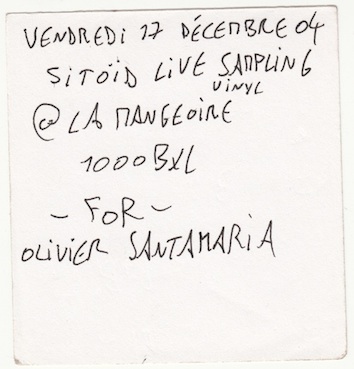 VENDREDI 17 DÉCEMBRE 04
SITOÏD LIVE SAMPLING
VINYL
@ LA MANGEOIRE
1000 BXL
- FOR -
OLIVIER SANTAMARIA